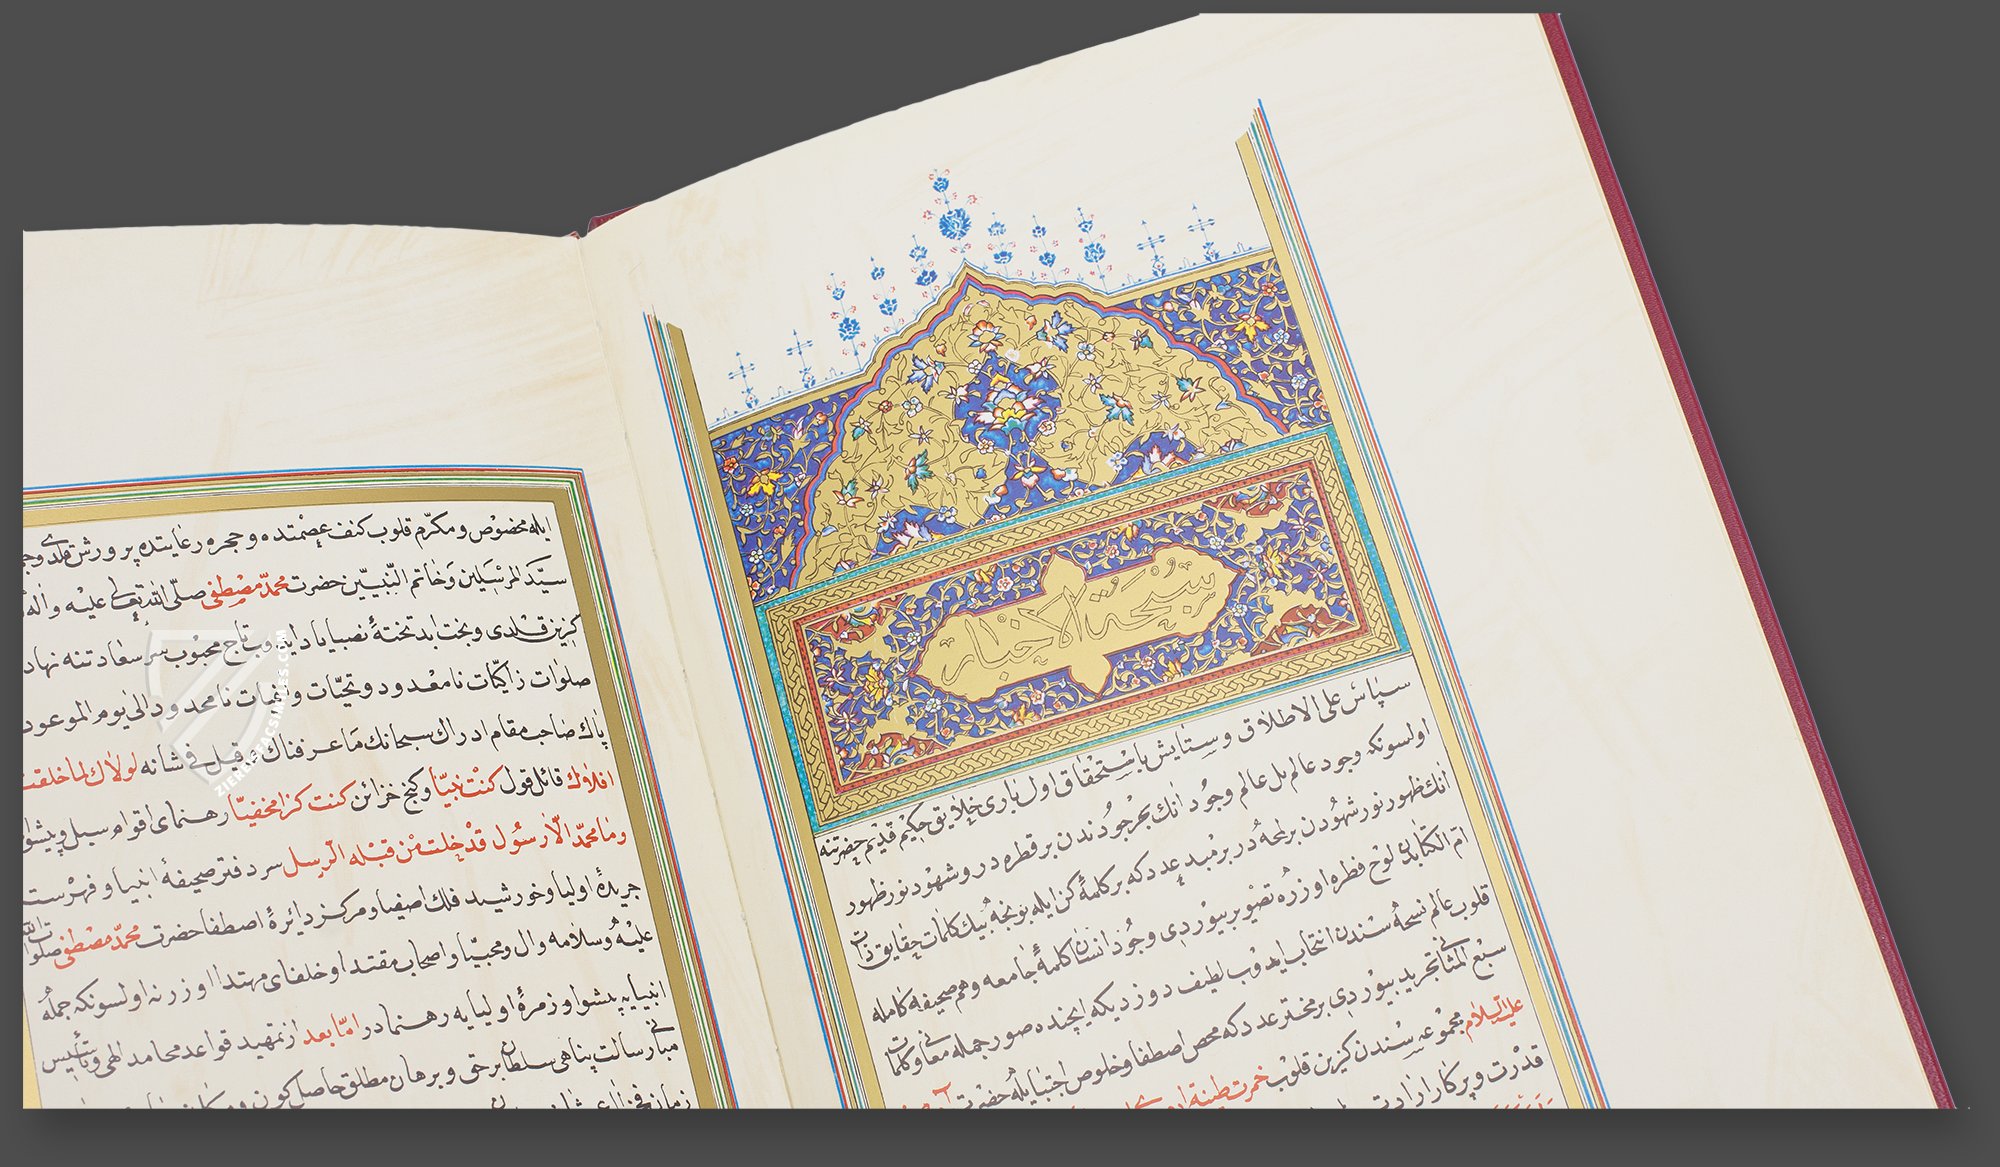 سبحة الاخبار
سپاس على الاطلاق وستايش باستحقاق اول بارى خلايق حكيم قديم حضرتنه
اولسونكه وجود عالم بل عالم وجود انك بحر جودندن بر قطره در وشهود نور ظهور
انك ظهور نور شهودن بر لمحه در بر مبدع در كه بر كلمۀ كن ايله بونجه بيك كلمات حقايق ذات
ام الكتابدن لوح فطره اوزره تصوير بيوردى وجود انسان كلمۀ جامعه وهم صحيفه كامله
قلوب عالم نسحۀ سندن انتخاب ايدوب لطيف دوزديكه ايچنده صور جمله معانى وكلمات
سبع المثانى تجريد بيوردى بر مخترعدر كه محض اصطفا وخلوص اجتبا يله حضرت آدم
عليه السلام مجموعه سندن كزين قلوب خمرت طينة
قدرت وپركار ارادت
ايله مخصوص ومكرّم قلوب كنف عصمتده وحجره رعايتده پرورش قلدى
سيّد المرسلين وخاتم النبيين حضرت محمد مصطفى صلّى الله تعالى عليه واله
كزين قلدى وبخت ابد تختۀ نصبيا ياد ايلدوب تاج محبوب سر سعادتنه نهاد
صلوات زاكيات نامعدود وتحيّات وافيات نامحدود الى يوم الموعود
پاك صاحب مقام ادراك سبحانك ما عرفناك وقيل فى شانه لولاك لما خلقت
افلاك قائل قول كنت نبيّا وكنج خزائن كنت كنزا مخفيّا رهنماى اقوام سبل وپيشوا
وما محمد الّا رسول قد خلت من قبله الرسل سر دفتر صحيفۀ انبيا وفهرست
جريدۀ اوليا وخورشيد فلك اصفيا ومركز دايرۀ اصطفا حضرت محمد مصطفى صلوات الله
عليه وسلامه وال ومحبيّا واصحاب مقتدا وخلفاى مهتدا اوزرنه اولسونكه جمله
انبيايه پيشوا وزمرۀ اوليايه رهنمادر امّا بعد از تمهيد قواعد محامد الهى وتأسيس
مبانى رسالت پناهى سلطان برحق وبرهان مطلق حاصل كون
زمان فخر
ZIEREIS FACSIMILES.COM